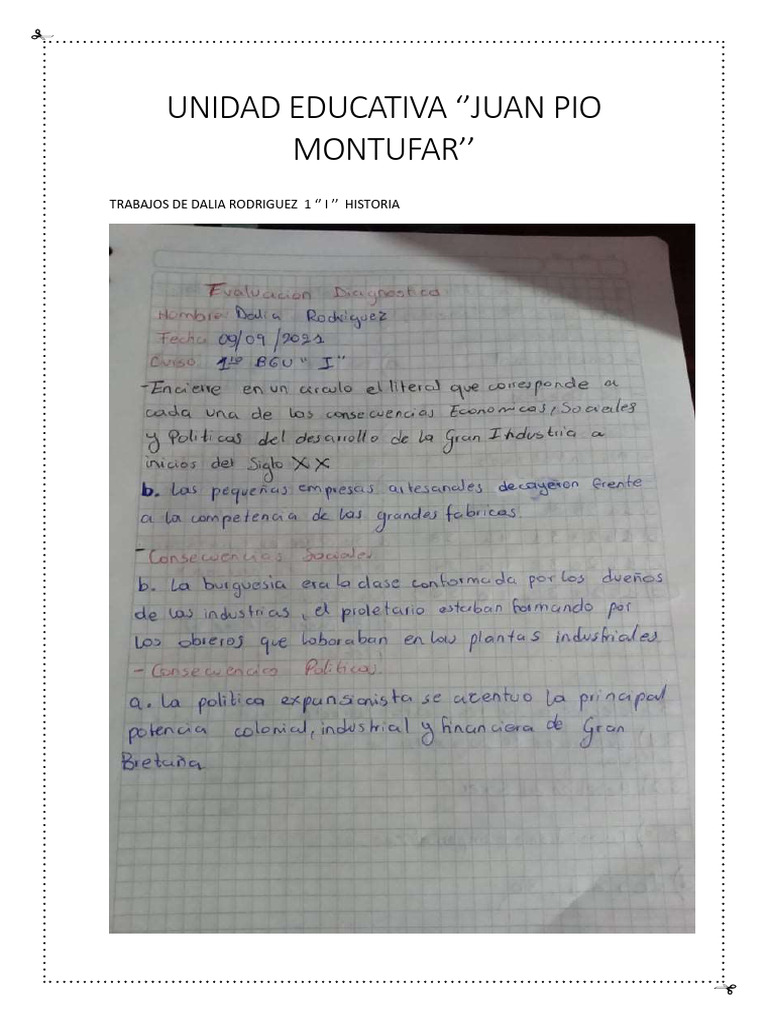 UNIDAD EDUCATIVA ‘’JUAN PIO
MONTUFAR’’
TRABAJOS DE DALIA RODRIGUEZ 1 ‘’ I ’’ HISTORIA
Evaluacion Diagnostica
Nombre: Dalia Rodriguez
Fecha: 09/09/2021
Curso: 1ro BGU "I"
-Encierre en un circulo el literal que corresponde a
cada una de las consecuencias Economicas, Sociales
y Politicas del desarrollo de la Gran Industria a
inicios del Siglo XX
b. Las pequeñas empresas artesanales decayeron frente
a la competencia de las grandes fabricas
- Consecuencias Sociales
b. La burguesia era la clase conformada por los dueños
de las industrias, el proletario estaban formando por
los obreros que laboraban en las plantas industriales
- Consecuencias Politicas
a. La politica expansionista se acentuo la principal
potencia colonial, industrial y financiera de Gran
Bretaña